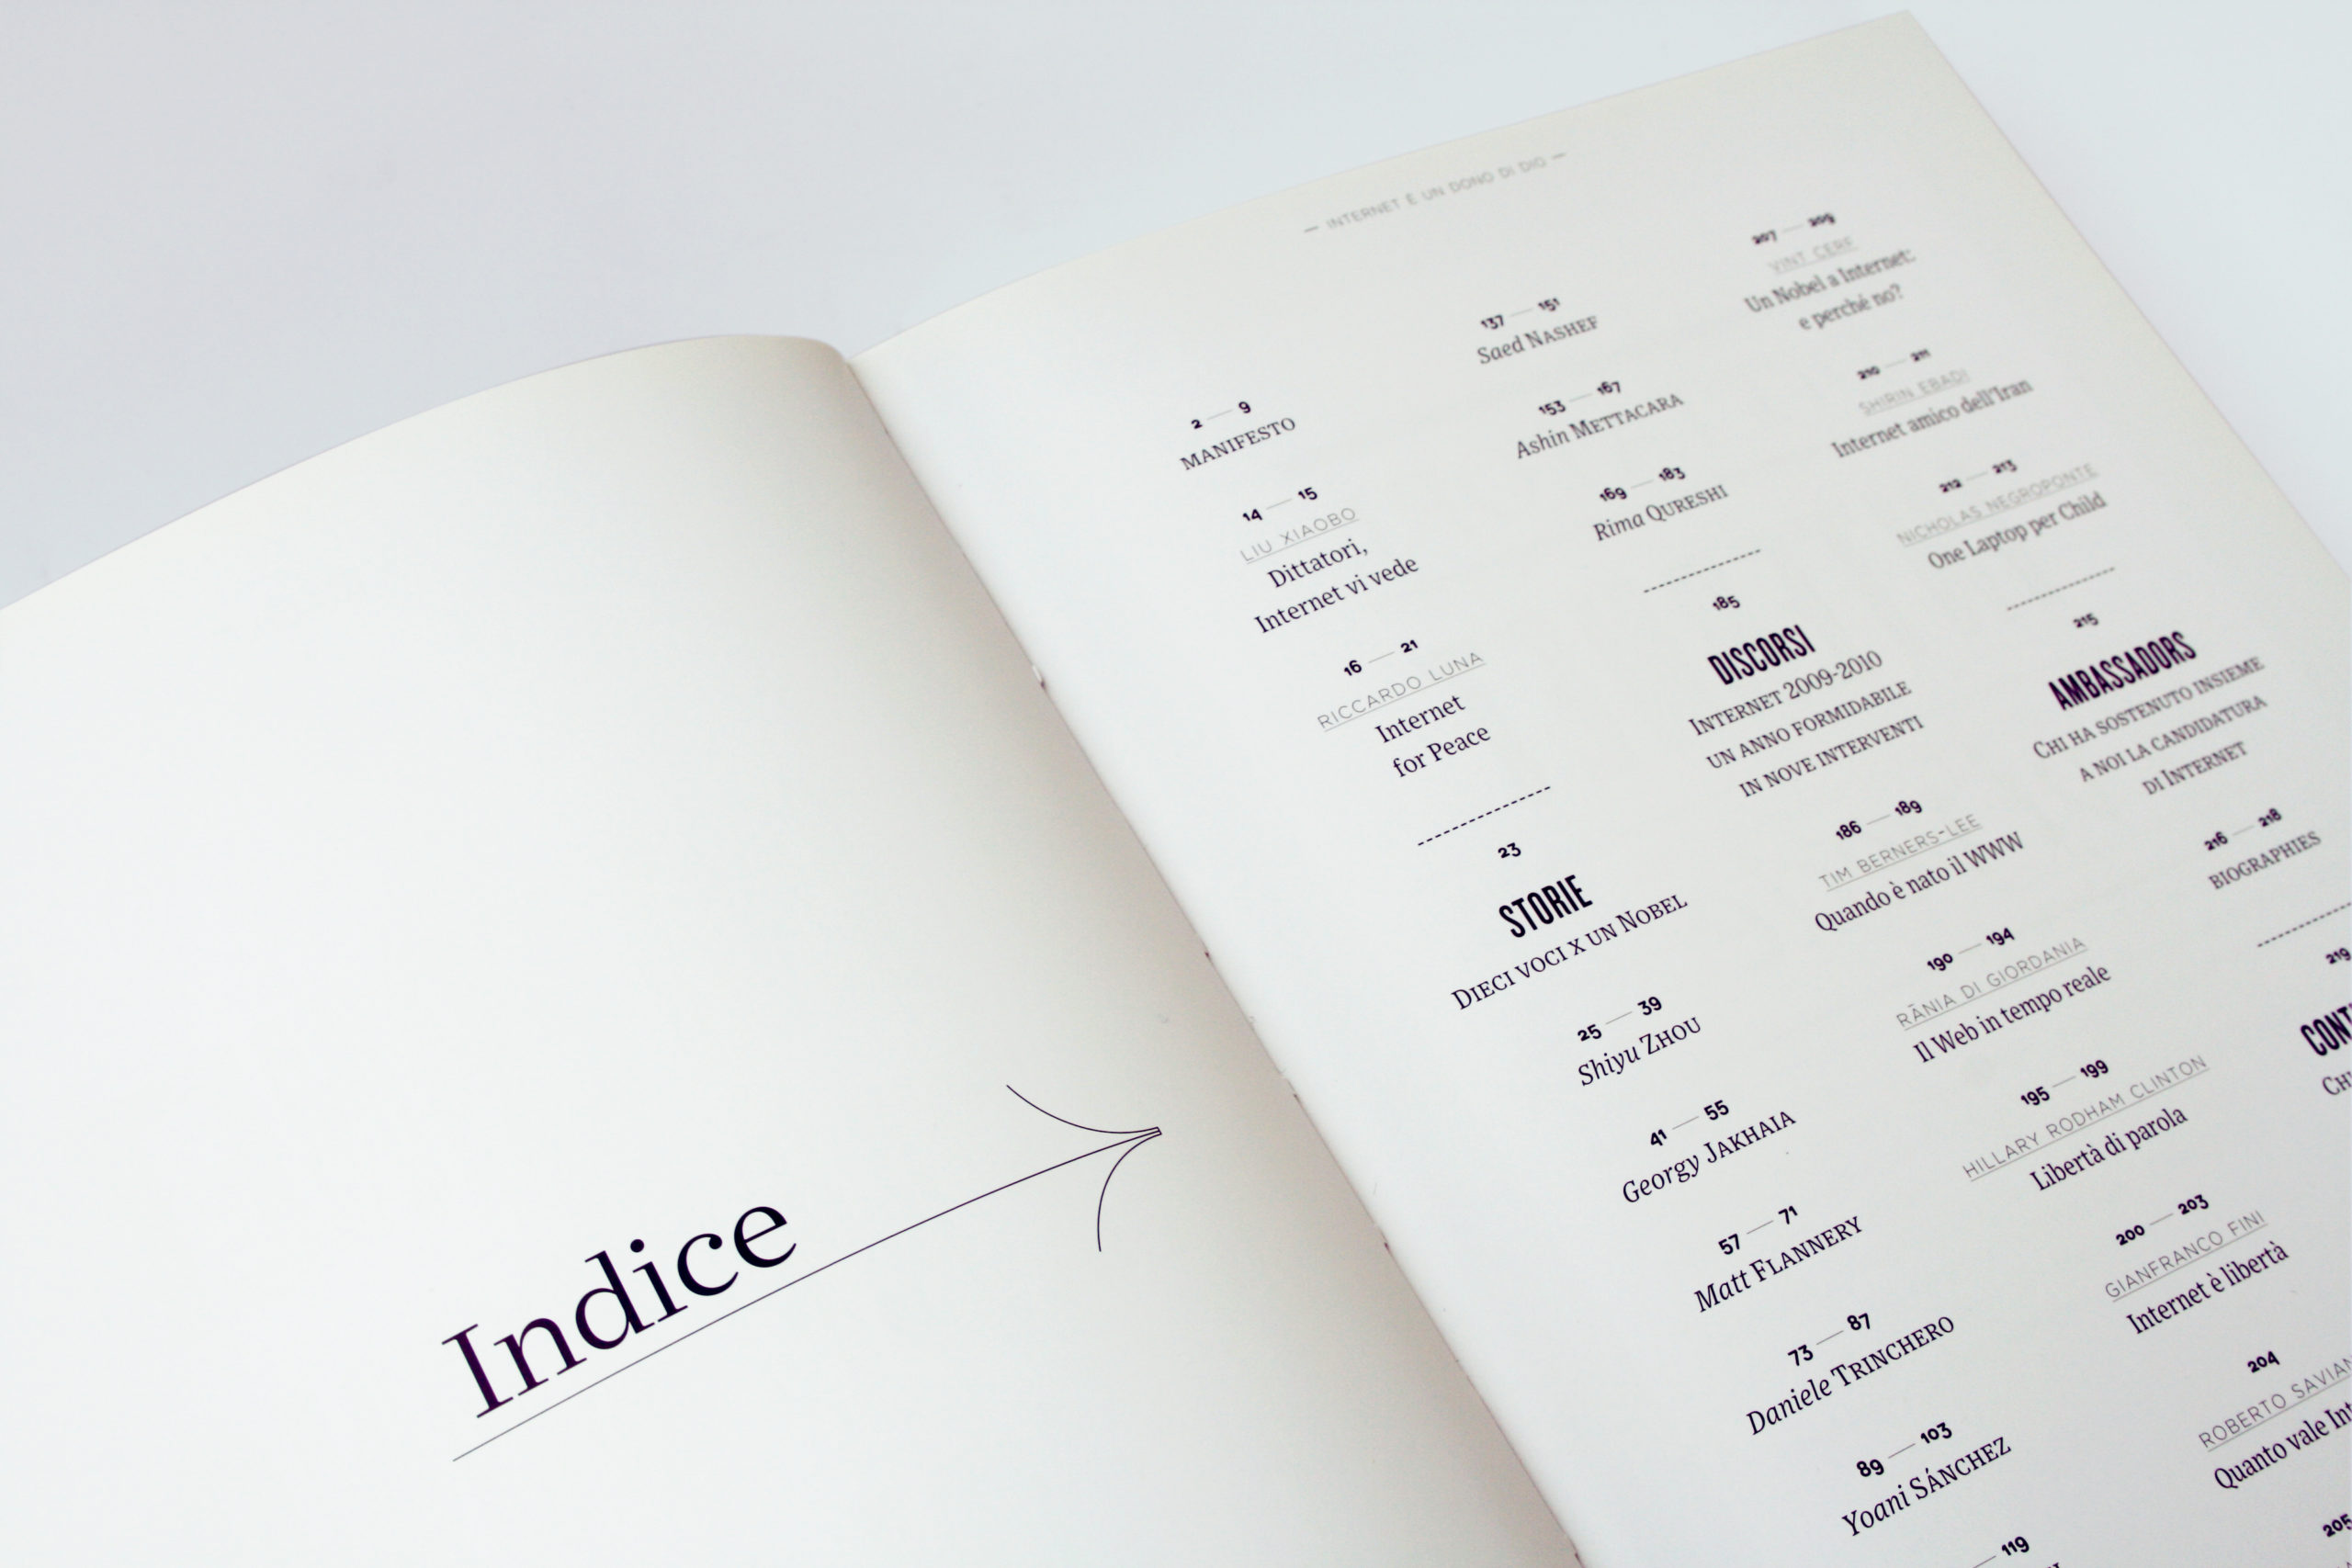 Indice
— INTERNET È UN DONO DI DIO —
2 — 9
MANIFESTO
14 — 15
LIU XIAOBO
Dittatori,
Internet vi vede
16 — 21
RICCARDO LUNA
Internet
for Peace
23
STORIE
DIECI VOCI X UN NOBEL
25 — 39
Shiyu ZHOU
41 — 55
Georgy JAKHAIA
57 — 71
Matt FLANNERY
73 — 87
Daniele TRINCHERO
89 — 103
Yoani SÁNCHEZ
— 119
137 — 151
Saed NASHEF
153 — 167
Ashin METTACARA
169 — 183
Rima QURESHI
185
DISCORSI
INTERNET 2009-2010
UN ANNO FORMIDABILE
IN NOVE INTERVENTI
186 — 189
TIM BERNERS-LEE
Quando è nato il WWW
190 — 194
RĀNIA DI GIORDANIA
Il Web in tempo reale
195 — 199
HILLARY RODHAM CLINTON
Libertà di parola
200 — 203
GIANFRANCO FINI
Internet è libertà
204
ROBERTO SAVIAN
Quanto vale Int
205
207 — 209
VINT CERF
Un Nobel a Internet:
e perché no?
210 — 211
SHIRIN EBADI
Internet amico dell'Iran
212 — 213
NICHOLAS NEGROPONTE
One Laptop per Child
215
AMBASSADORS
CHI HA SOSTENUTO INSIEME
A NOI LA CANDIDATURA
DI INTERNET
216 — 218
BIOGRAPHIES
219
CONT
CHI